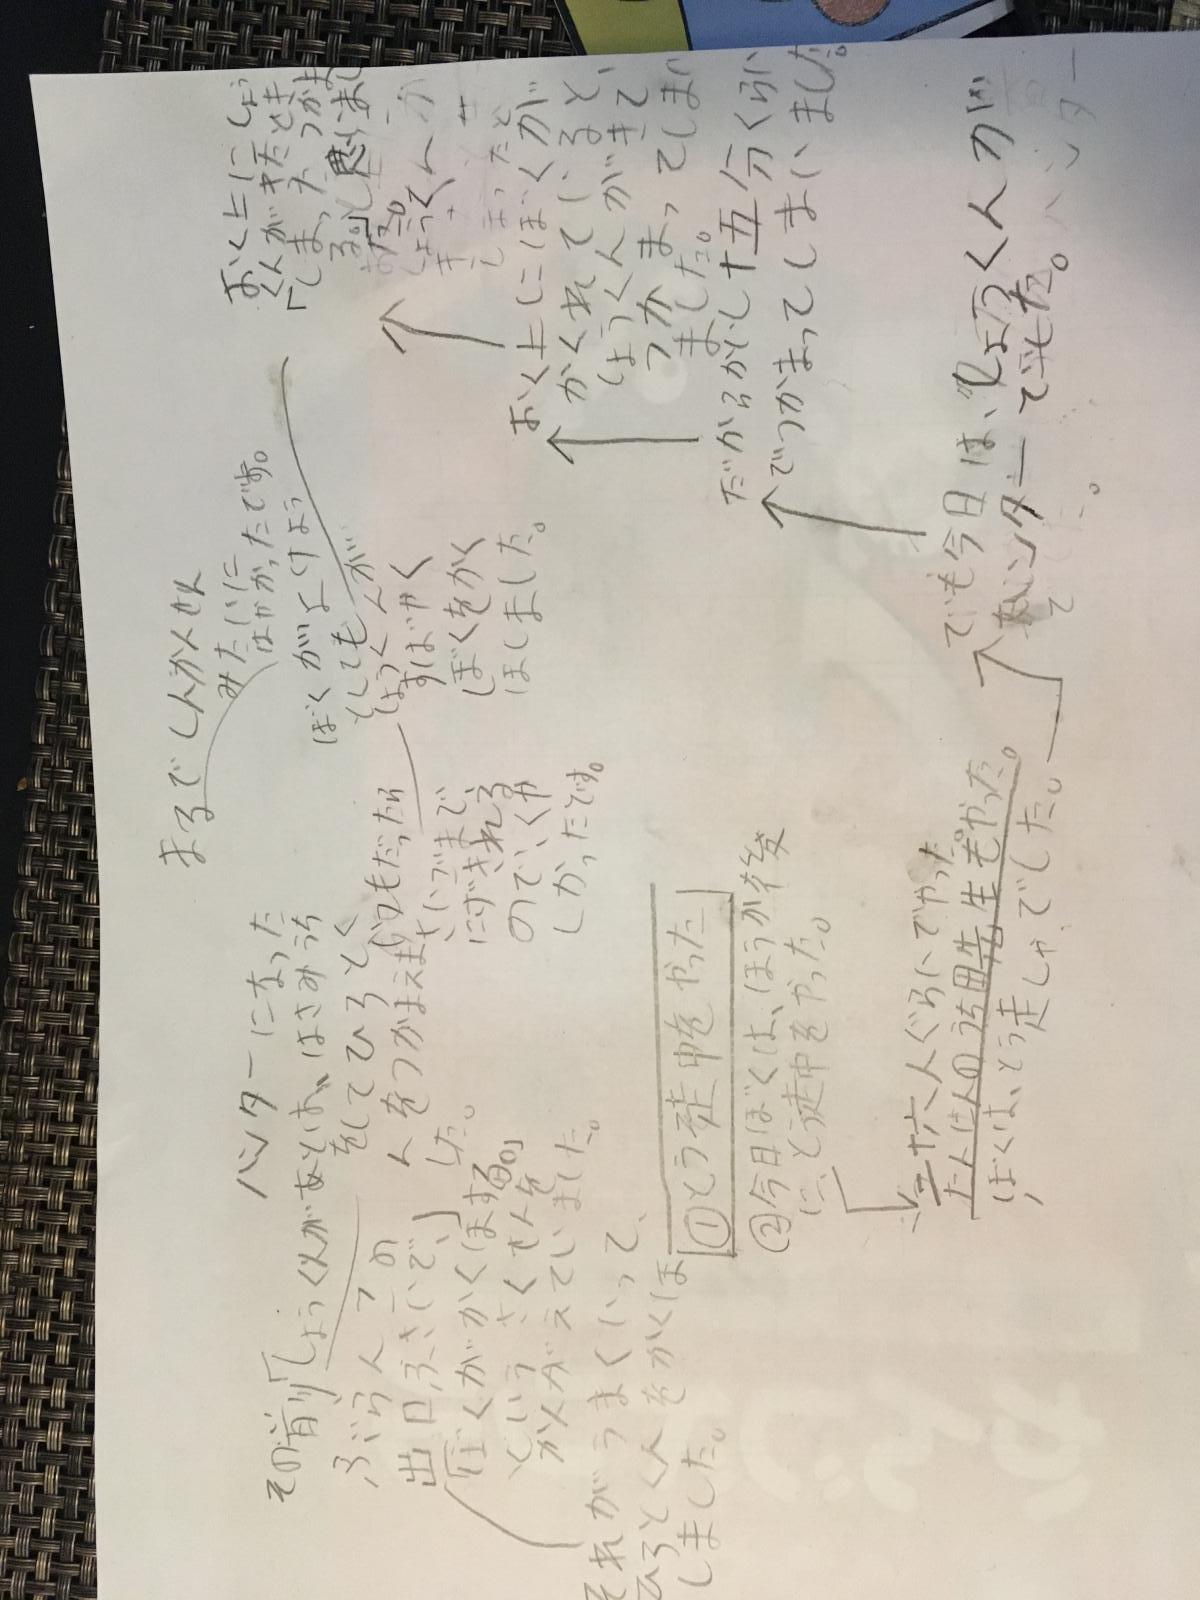 ①とう走中をやった
②今日ぼくは、ほうか後
に、とう走中をやった。
二十六人ぐらいでやった
た人は人のうち田先生もやった。
ぼくは、とう走しゃでした。
でも今日は、りょうくんが
ハンターでした。
だからかし十五分くらい
でつかまってしまいました。
おく上にぼくが
かくれていると
りょうくんがきて
つかまってしまい
ました。
おく上にりょう
くんがきたとき
「しまったつかま
る。」と思いまし
た。
ぼくがよけよう
としても
りょうくんが
すばやく
ぼくをかく
ほしました。
まるでしんかんせん
みたいに
はやかったです。
いつもだったら
さいごまで、
にげきれる
のでくや
しかったです。
ハンターになった
あとは、はさみうち
をしてひろとく
人をつかまえま
した。
その前「りょうくんが
ぶらんこの
出口ふさいで」
「ぼくがかくほする。」
という、さくせんを
かんがえていました。
それがうまくいって、
ひろとくんをかくほ
しました。